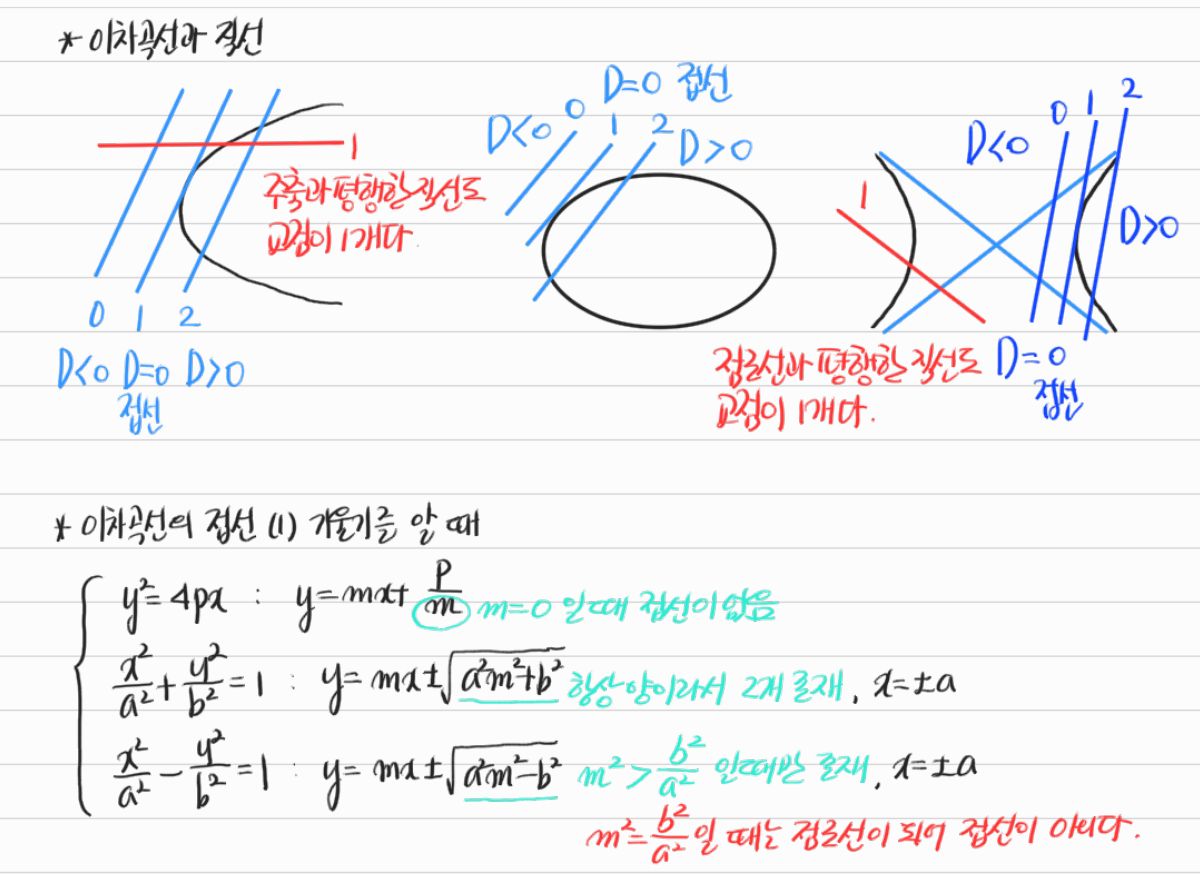 * 이차곡선과 직선
D=0 접선
D<0 0 1 2 D>0
0 1 2
D<0 D>0
1
주축과 평행한 직선도
교점이 1개다.
1
0 1 2
D<0 D=0 D>0
접선
점근선과 평행한 직선도
교점이 1개다.
D=0
접선
* 이차곡선의 접선 (1) 기울기를 알 때
y²=4px : y=mx+p/m m=0 일때 접선이 없음
x²/a²+y²/b²=1 : y=mx±√(a²m²+b²) 항상 양이라서 2개 존재, x=±a
x²/a²-y²/b²=1 : y=mx±√(a²m²-b²) m²>b²/a² 일때만 존재, x=±a
m²=b²/a²일 때는 점근선이 되어 접선이 아니다.